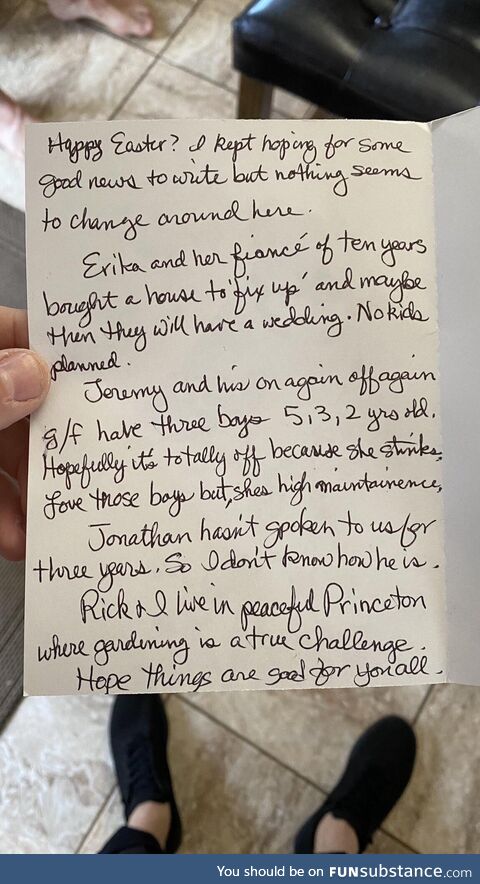 Happy Easter? I kept hoping for some
good news to write but nothing seems
to change around here.
Erika and her fiancé of ten years
bought a house to 'fix up' and maybe
then they will have a wedding. No kids
planned.
Jeremy and his on again off again
g/f have three boys 5, 3, 2 yrs old.
Hopefully it's totally off because she stinks.
Love those boys but, shes high maintainence,
Jonathan hasn't spoken to us for
three years. So I don't know how he is.
Rick & I live in peaceful Princeton
where gardening is a true challenge.
Hope things are good for you all.
You should be on FUNsubstance.com